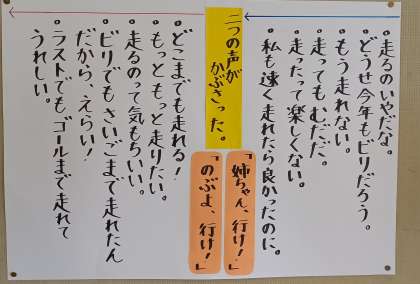 ・走るのいやだな。
・どうせ今年もビリだろう。
・もう走れない。
・走ってもむだだ。
・走ったって楽しくない。
・私も速く走れたら良かったのに。
二つの声が
かぶさった。
「姉ちゃん、行け!」
「のぶよ、行け!」
・どこまでも走れる!
・もっともっと走りたい。
・走るのって気もちいい。
・ビリでもさいごまで走れたん
だから、えらい!
・ラストでもゴールまで走れて
うれしい。